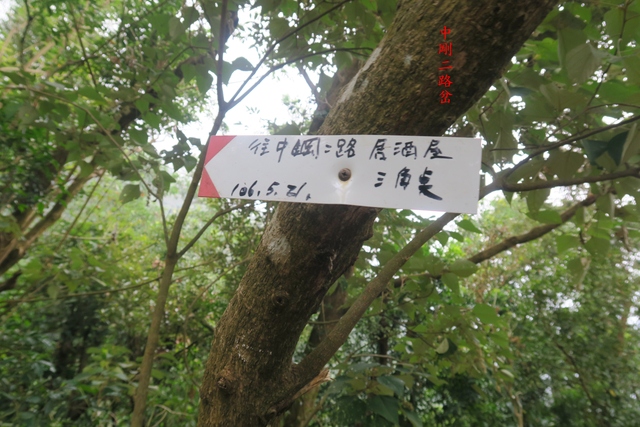 中剛二路岔
往中鋼二路居酒屋
三角点
106.5.21.